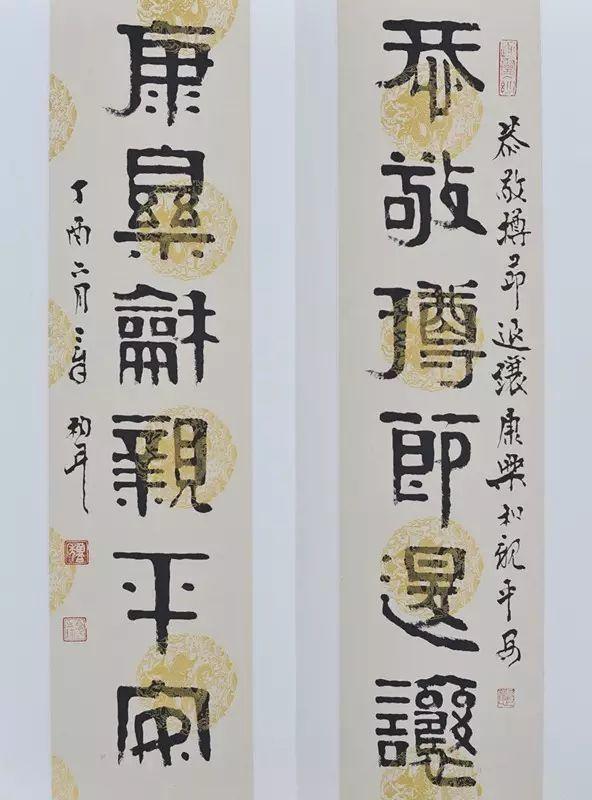 恭敬撙節退讓
恭敬撙節退讓康樂和親平安
康樂龢親平安
丁酉六月